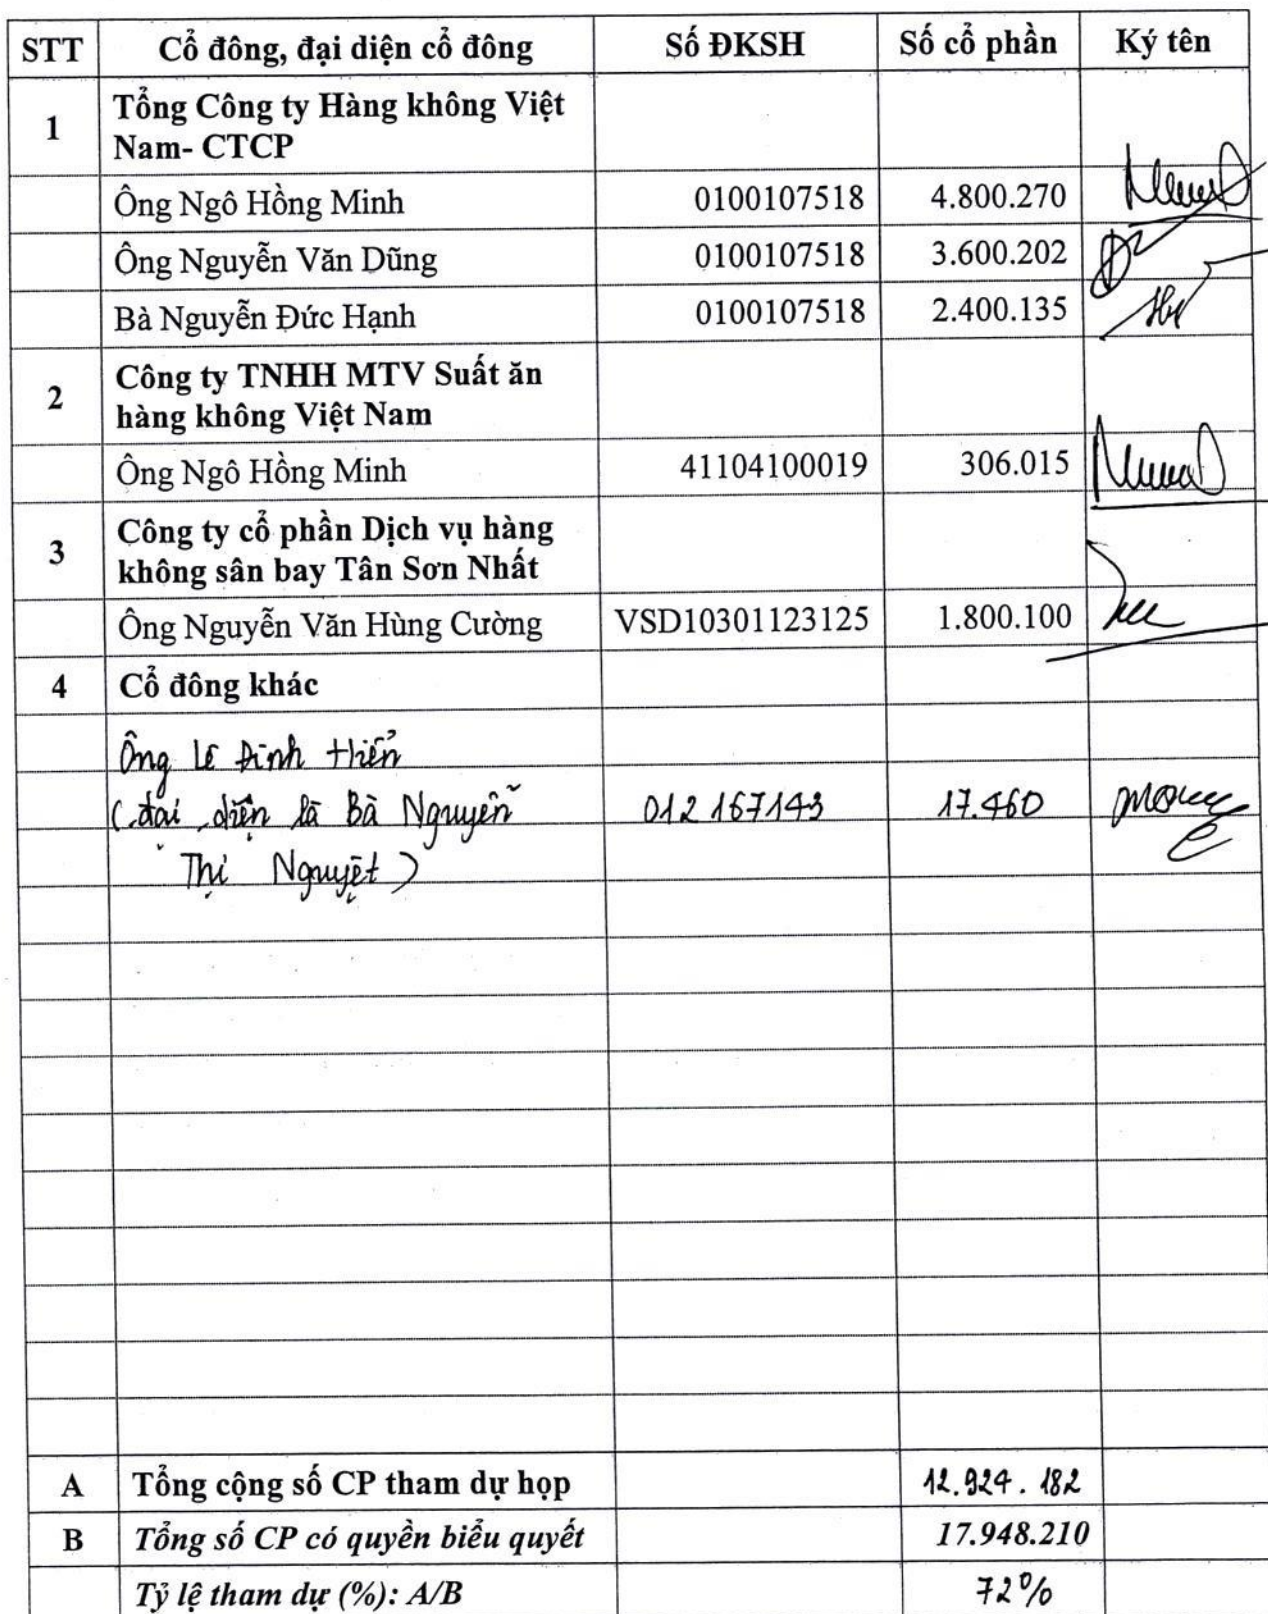 STT Cổ đông, đại diện cổ đông Số ĐKSH Số cổ phần Ký tên
1 Tổng Công ty Hàng không Việt
Nam- CTCP
Ông Ngô Hồng Minh 0100107518 4.800.270
Ông Nguyễn Văn Dũng 0100107518 3.600.202
Bà Nguyễn Đức Hạnh 0100107518 2.400.135
2 Công ty TNHH MTV Suất ăn
hàng không Việt Nam
Ông Ngô Hồng Minh 41104100019 306.015
3 Công ty cổ phần Dịch vụ hàng
không sân bay Tân Sơn Nhất
Ông Nguyễn Văn Hùng Cường VSD10301123125 1.800.100
4 Cổ đông khác
Ông Lê Đình Hiển
(đại diện là Bà Nguyễn 012167143 17.460
Thị Nguyệt)
A Tổng cộng số CP tham dự họp 12.924.182
B Tổng số CP có quyền biểu quyết 17.948.210
Tỷ lệ tham dự (%): A/B 72%